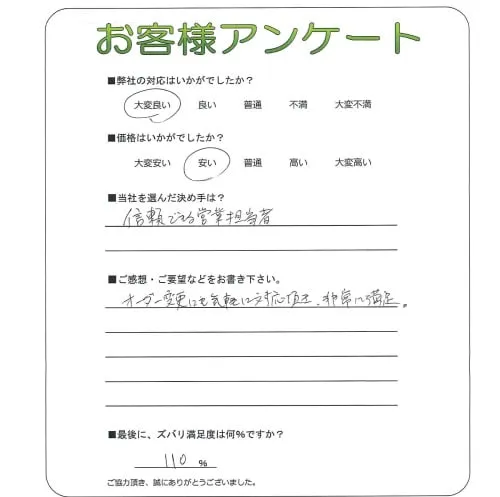 お客様アンケート
■弊社の対応はいかがでしたか？
大変良い 良い 普通 不満 大変不満
■価格はいかがでしたか？
大変安い 安い 普通 高い 大変高い
■当社を選んだ決め手は？
信頼できる営業担当者
■ご感想・ご要望などをお書き下さい。
オーダー変更にも気軽に対応頂き、非常に満足。
■最後に、ズバリ満足度は何%ですか？
110 %
ご協力頂き、誠にありがとうございました。